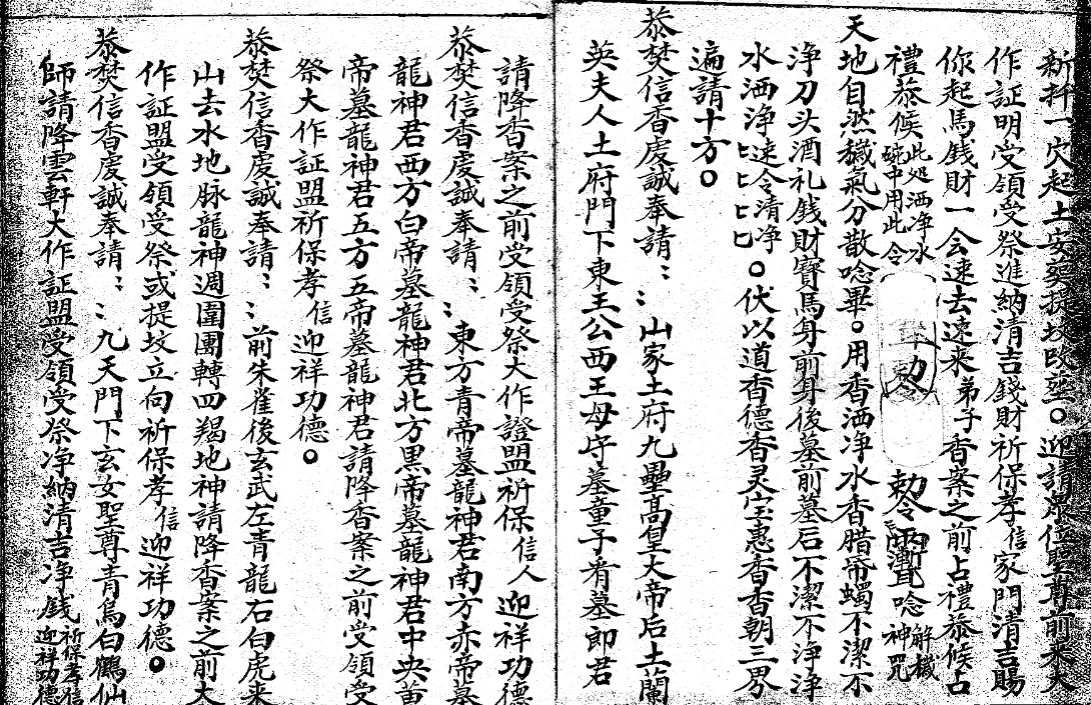 新扦一穴起土安葬提坟改塟。迎請眾位聖尊前来大
作証明受領受祭進納清吉錢財祈保孝信家門清吉賜
你起馬銭財一会速去速来弟子香案之前占禮恭候占
禮恭候此処洒浄水碗中用此令 勅令 唸解穢神咒
天地自然穢氣分散唸畢。用香洒净水香腊帋蠋不潔不
浄刀头酒礼銭財寳馬身前身後墓前墓后不潔不浄浄
水洒浄速令清净匕匕匕匕。伏以道香德香灵宝惠香香朝三界
遍請十方。
恭焚信香虔誠奉請：：山家土府九壘高皇大帝后土蘭
英夫人土府門下東王公西王母守墓童子看墓郎君
請降香案之前受領受祭大作證盟祈保信人迎祥功德
恭焚信香虔誠奉請：：東方青帝墓龍神君南方赤帝墓
龍神君西方白帝墓龍神君北方黒帝墓龍神君中央黄
帝墓龍神君五方五帝墓龍神君請降香案之前受領受
祭大作証盟祈保孝信迎祥功德。
恭焚信香虔誠奉請：：前朱雀後玄武左青龍右白虎来
山去水地脉龍神週圍團轉四羯地神請降香案之前大
作証盟受領受祭或提坟立向祈保孝信迎祥功德。
恭焚信香虔誠奉請：：九天門下玄女聖尊青烏白鶴仙
師請降雲軒大作証盟受領受祭净納清吉净銭祈保孝信迎祥功德